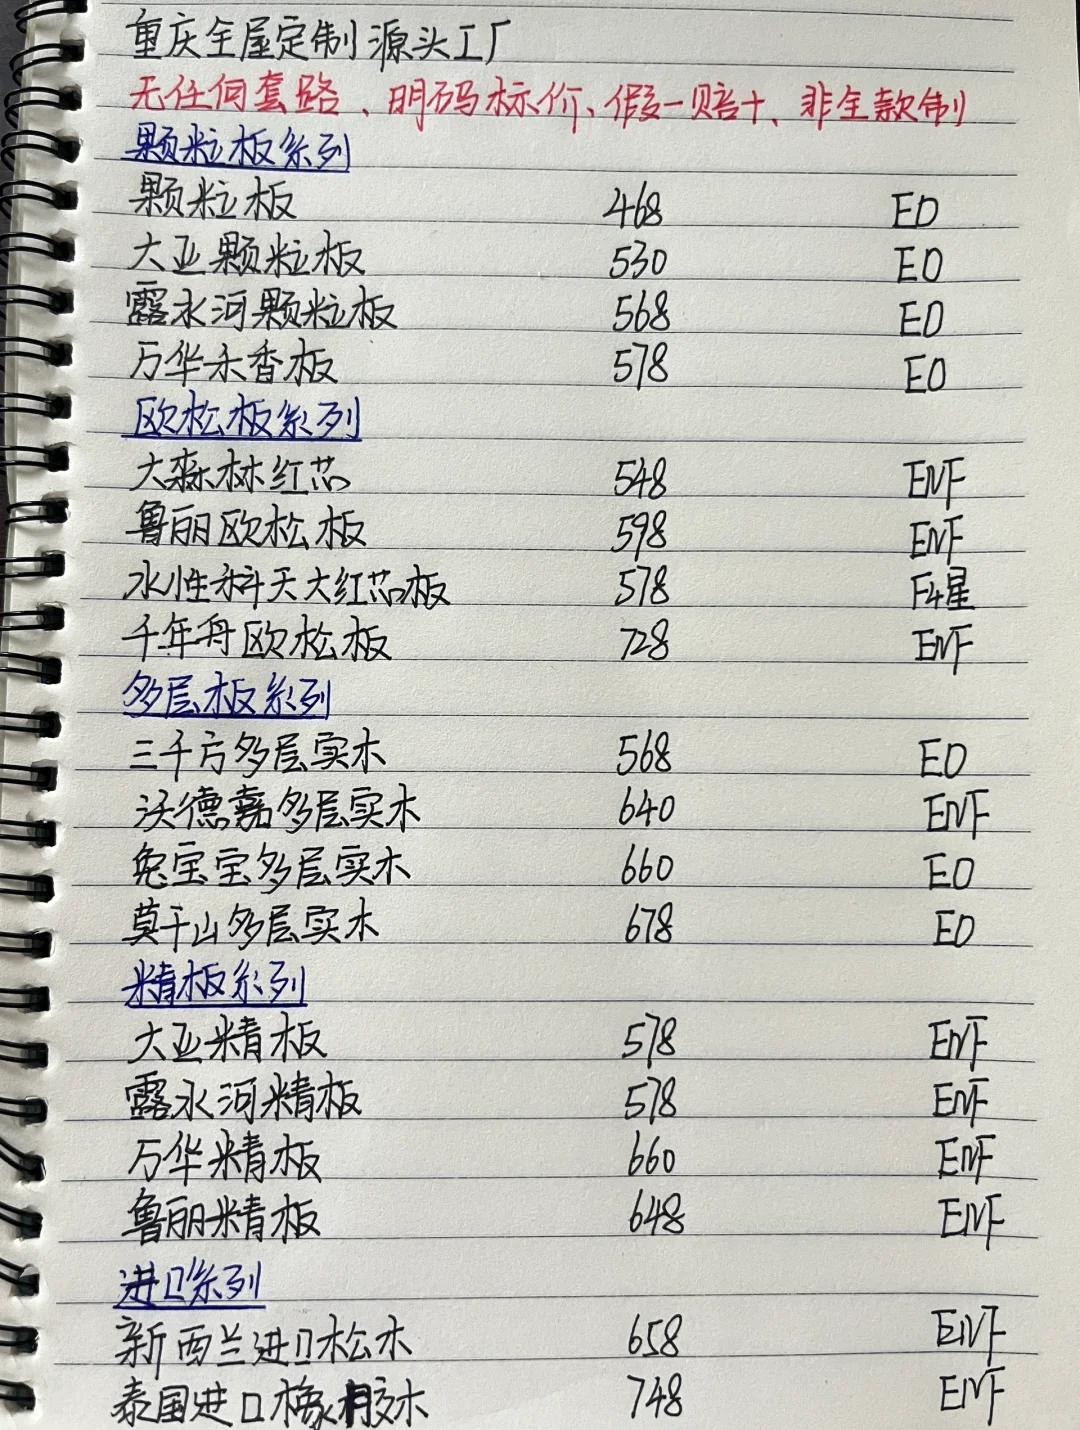 重庆全屋定制源头工厂
无任何套路、明码标价、假一赔十、非全款制
颗粒板系列
颗粒板 468 E0
大亚颗粒板 530 E0
露水河颗粒板 568 E0
万华禾香板 578 E0
欧松板系列
大森林红芯 548 ENF
鲁丽欧松板 598 ENF
水性科天大红芯板 578 F4星
千年舟欧松板 728 ENF
多层板系列
三千方多层实木 568 E0
沃德嘉多层实木 640 ENF
兔宝宝多层实木 660 E0
莫干山多层实木 678 E0
精板系列
大亚精板 578 ENF
露水河精板 578 ENF
万华精板 660 ENF
鲁丽精板 648 ENF
进口系列
新西兰进口松木 658 ENF
泰国进口橡胶木 748 ENF